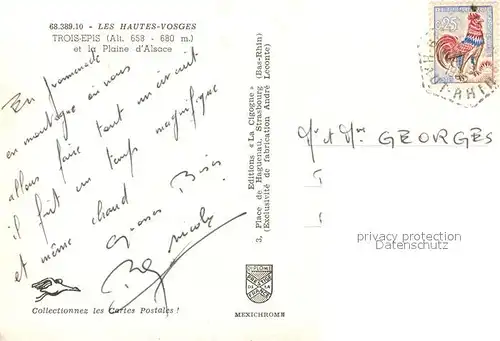 68.389.10 - LES HAUTES-VOSGES
TROIS-EPIS (Alt. 658 - 680 m.)
et la Plaine d'Alsace
En promenade
en montagne où nous
allons faire tout un circuit
il fait un temps magnifique
et même chaud
Grosses Bises
Nicole
Collectionnez les Cartes Postales !
Editions « La Cigogne »
3, Place de Haguenau, Strasbourg (Bas-Rhin)
(Exclusivité de fabrication André Leconte)
DIPLOME
PRESTIGE
DE LA
FRANCE
MEXICHROME
0,25
Mr et Mme GEORGES
privacy protection
Datenschutz